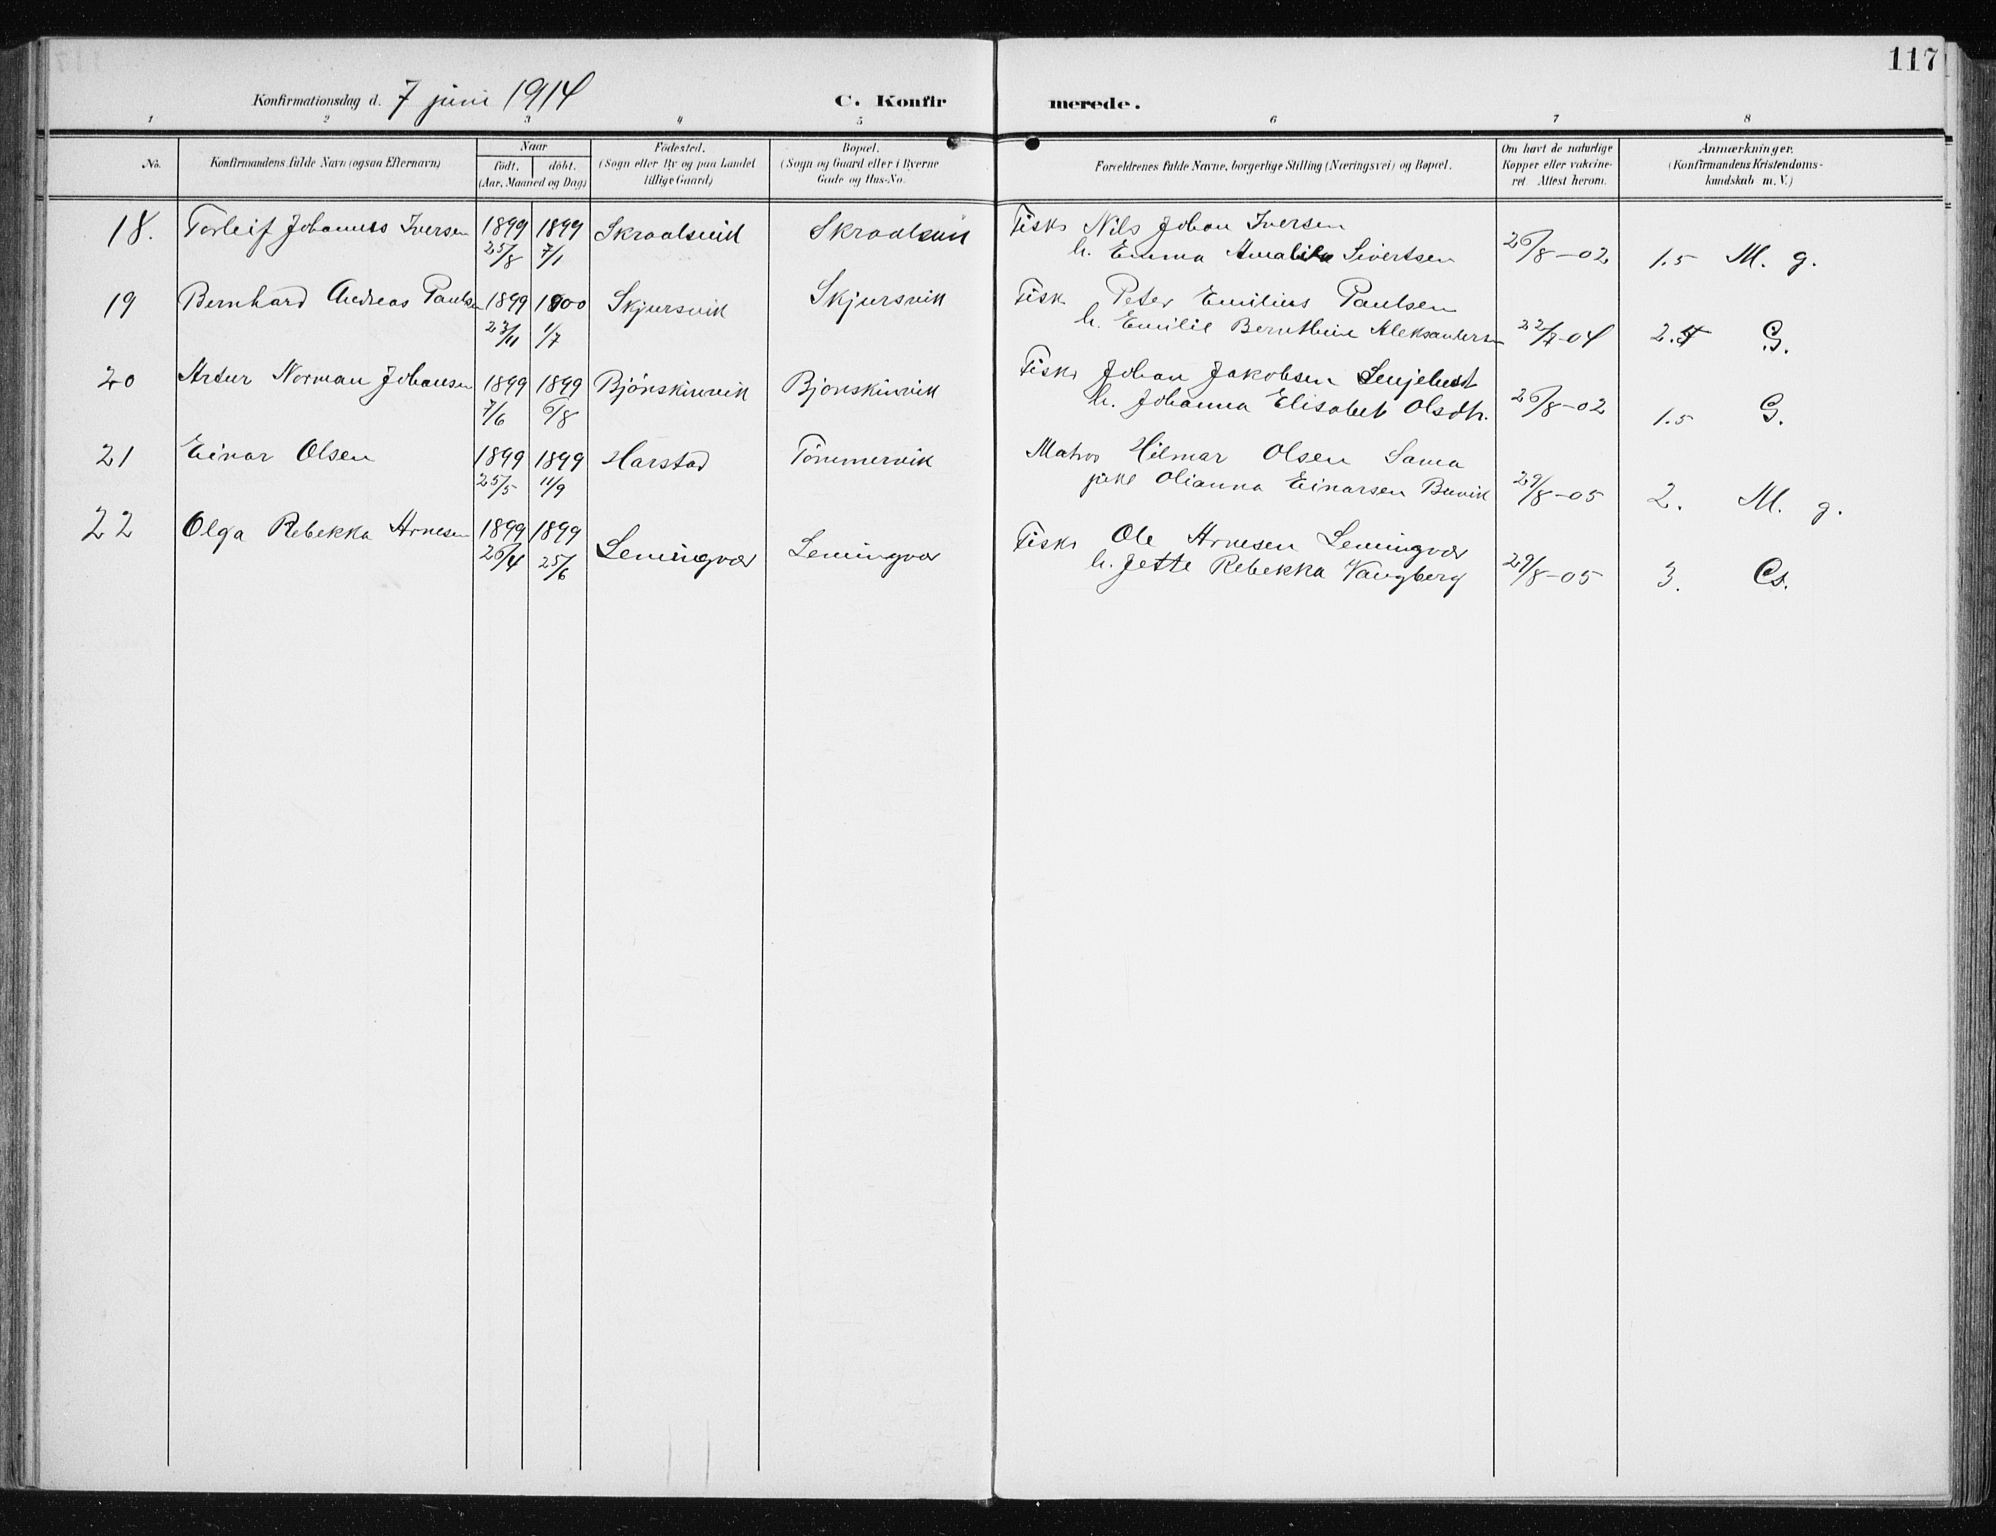 117
Konfirmationsdag d. 7 juni 1914 C. Konfirmerede.
1 2 3 4 5 6 7 8
No. Konfirmandens fulde Navn (ogsaa Efternavn) Naar födt. döbt. (Aar, Maaned og Dag) Födested. (Sogn eller By og paa Landet tillige Gaard) Bopæl. (Sogn og Gaard eller i Byerne Gade og Hus-No. Forældrenes fulde Navne, borgerlige Stilling (Næringsvei) og Bopæl. Om havt de naturlige Kopper eller vakcineret. Attest herom. Anmærkninger. (Konfirmandens Kristendomskundskab m. V.)
18. Torleif Johannes Iversen 1899 1899 Skraalsvik Skraalsvik Fisk. Nils Johan Iversen
25/8 7/1 h. Emma Amalia Sivertsen 26/8-02 1.5 M. g.
19 Bernhard Andreas Paulsen 1899 1900 Skjursvik Skjursvik Fisk. Peter Emilius Paulsen
23/11 1/7 h. Emilie Bernthine Aleksandersen 22/7-04 2.5 G.
20 Artur Norman Johansen 1899 1899 Bjönskinvik Bjönskinvik Fisk. Johan Jakobsen Senjehest
7/6 6/8 h. Johanna Elisabet Olsdtr. 26/8-02 1.5 G.
21 Einar Olsen 1899 1899 Harstad Tömmervik Matros Hilmar Olsen Sama
25/5 11/9 pike Olianna Einarsen Buvik 29/8-05 2. M. g.
22 Olga Rebekka Arnesen 1899 1899 Lemingvær Lemingvær Fisk. Ole Arnesen Lemingvær
26/4 25/6 h. Jette Rebekka Vangberg 29/8-05 3. Cs.